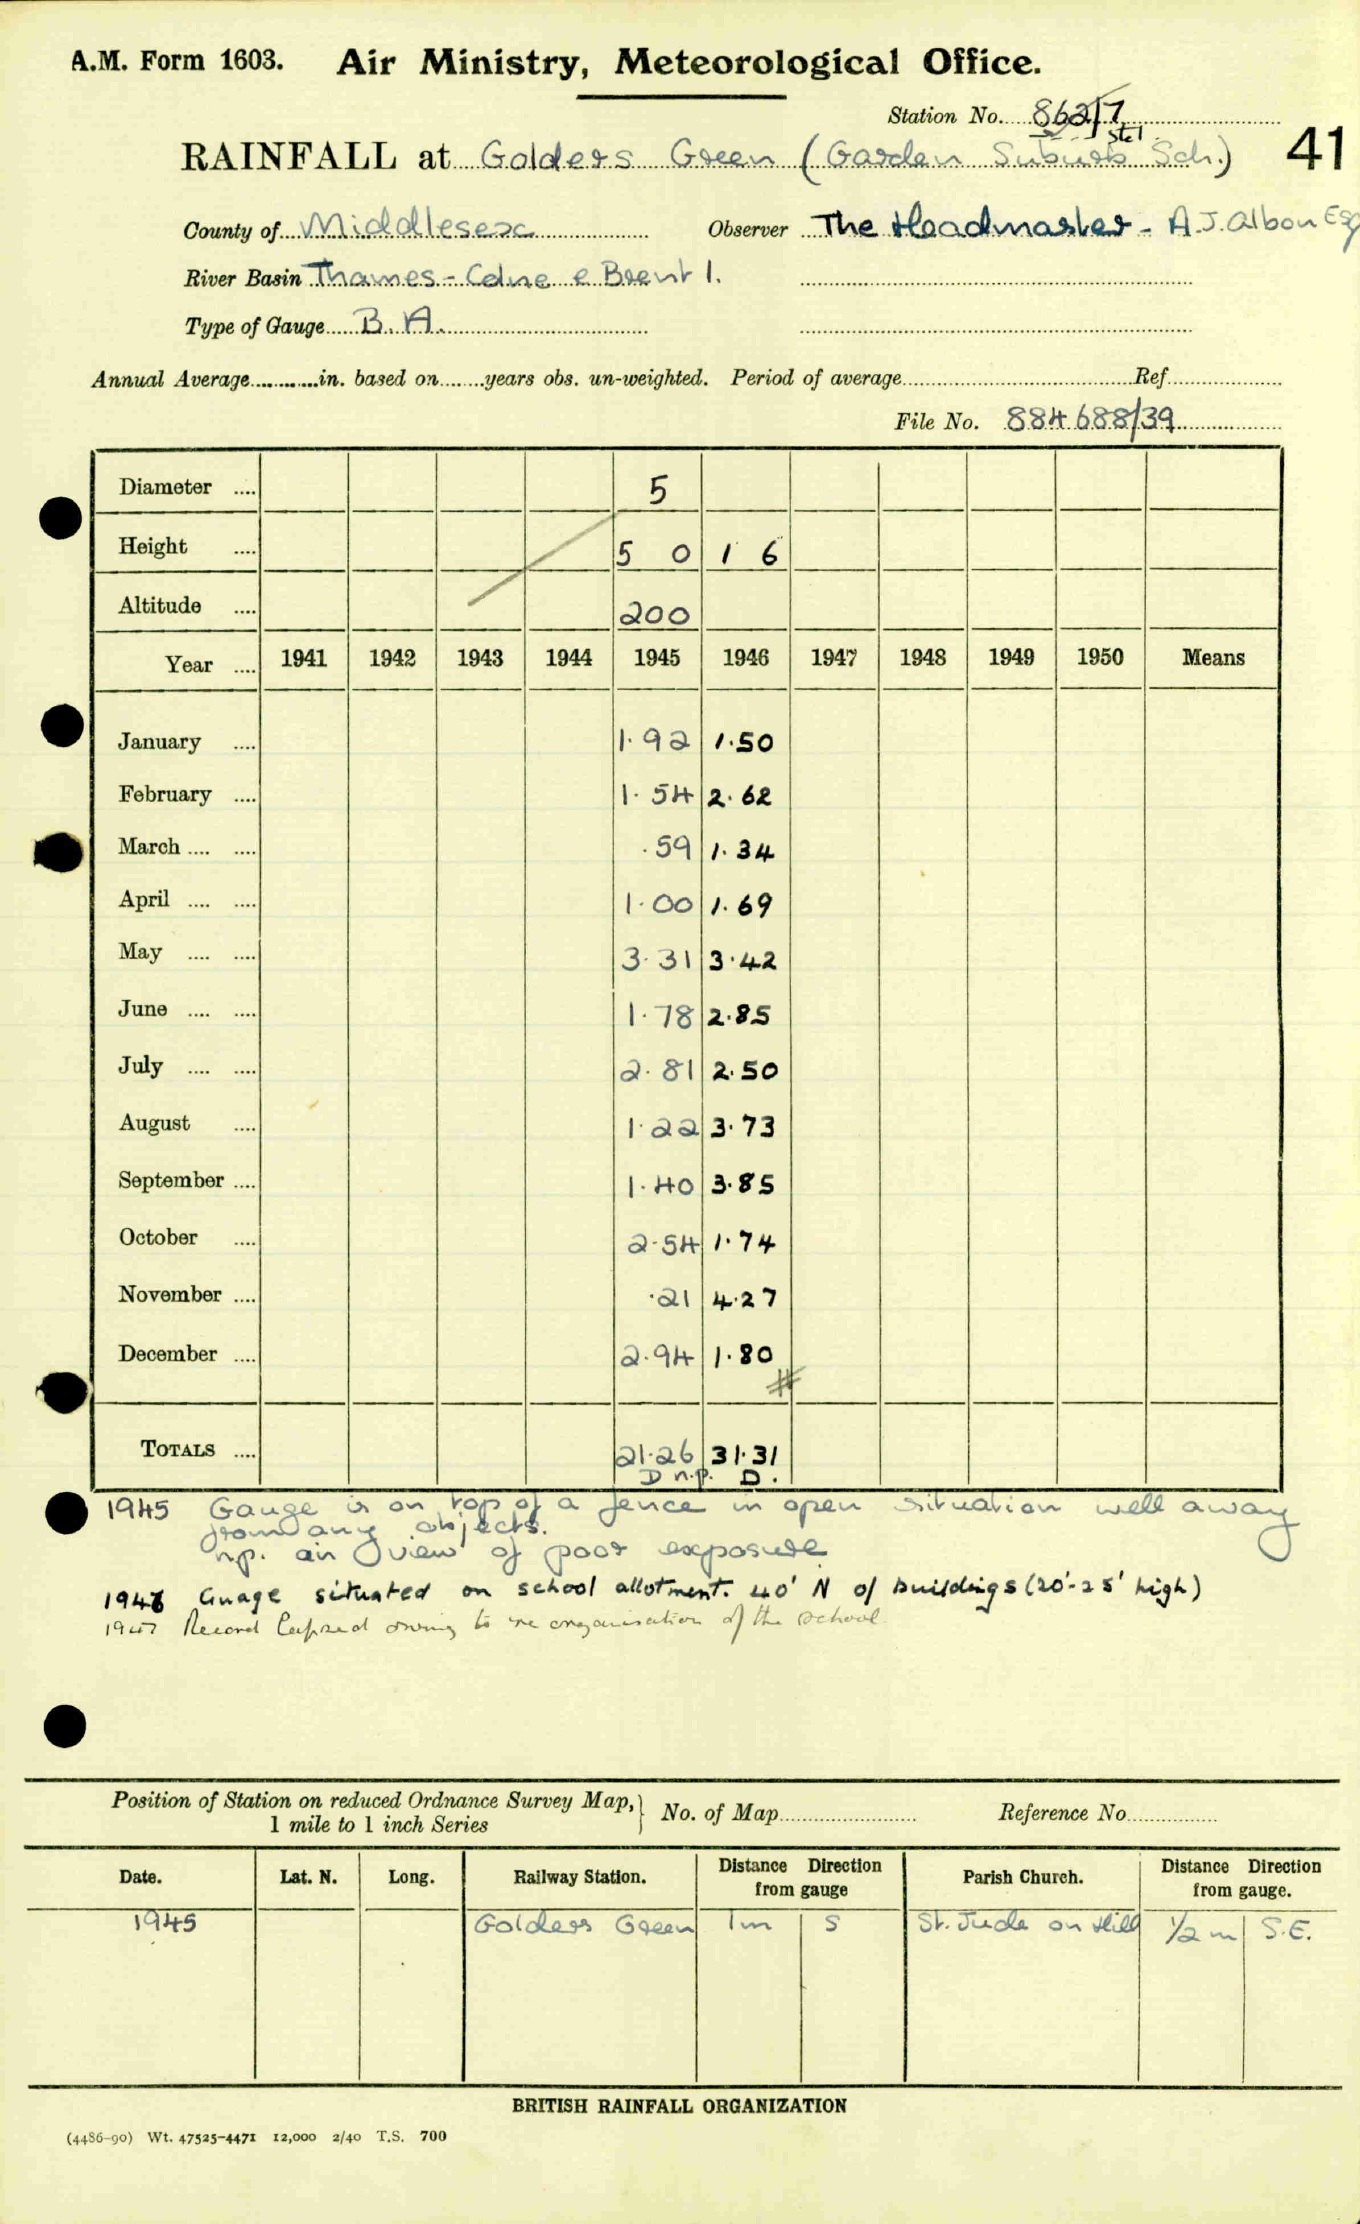 A.M. Form 1603. Air Ministry, Meteorological Office.
Station No. 862/7
RAINFALL at Golders Green (Garden Suburb Stel Sch.) 41
County of Middlesex Observer The Headmaster - A.J. Albon Esq
River Basin Thames - Colne & Brent 1.
Type of Gauge B.A.
Annual Average in. based on years obs. un-weighted. Period of average Ref
File No. 884688/39
Diameter .... 5
Height .... 5 0 1 6
Altitude .... 200
Year .... 1941 1942 1943 1944 1945 1946 1947 1948 1949 1950 Means
January .... 1.92 1.50
February .... 1.54 2.62
March .... .... .59 1.34
April .... .... 1.00 1.69
May .... .... 3.31 3.42
June .... .... 1.78 2.85
July .... .... 2.81 2.50
August .... 1.22 3.73
September .... 1.40 3.85
October .... 2.54 1.74
November .... .21 4.27
December .... 2.94 1.80
#
TOTALS .... 21.26 31.31
D n.p. D.
1945 Gauge is on top of a fence in open situation well away
from any objects.
n.p. in view of poor exposure
1946 Guage situated on school allotment. 40' N of buildings (20'-25' high)
1947 Record lapsed owing to re organisation of the school
Position of Station on reduced Ordnance Survey Map, } No. of Map Reference No.
1 mile to 1 inch Series
Date. Lat. N. Long. Railway Station. Distance Direction from gauge Parish Church. Distance Direction from gauge.
1945 Golders Green 1m S St. Jude on Hill 1/2 m S.E.
BRITISH RAINFALL ORGANIZATION
(4486-90) Wt. 47525-4471 12,000 2/40 T.S. 700